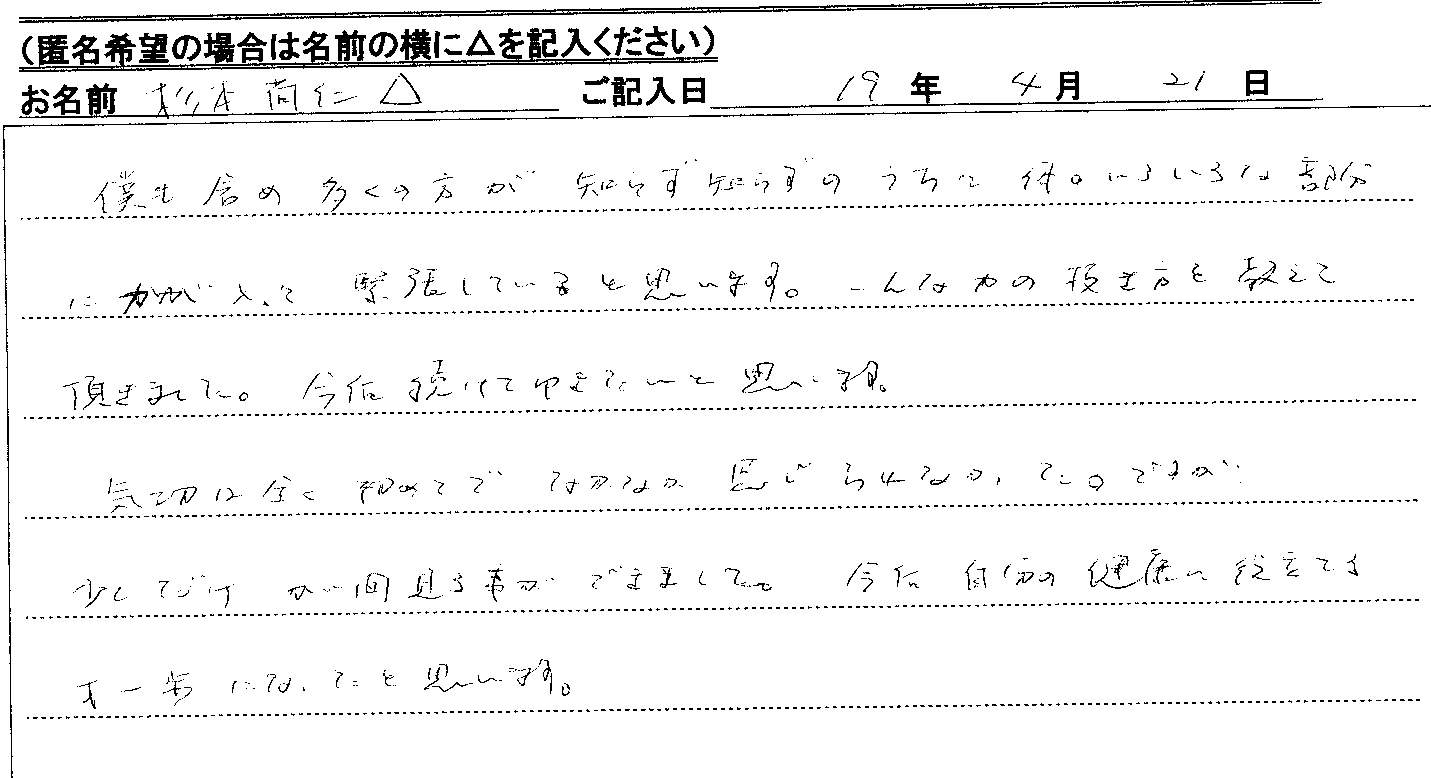 (匿名希望の場合は名前の横に△を記入ください)
お名前 杉本 尚仁 △ ご記入日 19年 4月 21日
僕も含め 多くの方が 知らず知らずのうちに 体のいろいろな部分
に力が入って 緊張していると思います。こんな力の抜き方を教えて
頂きました。今后続けてゆきたいと思います。
気功は全く初めてで なかなか 感じられなかったのですが
少しだけ かい間見る事ができました。 今后 自分の健康に役立てる
才一歩になったと思います。